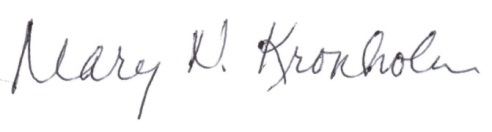 Mary N. Kronholm